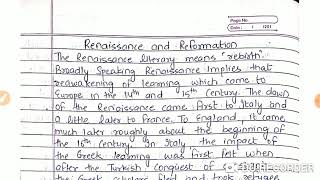 Page No.
Date : / /201
Renaissance and Reformation
The Renaissance literary means "rebirth".
Broadly Speaking Renaissance implies that
reawakening of learning which came to
Europe in the 14th and 15th century. The dawn
of the Renaissance came first to Italy and
a little later to France. To England, it came
much later roughly about the beginning of
the 16th century. In Italy, the impact of
the Greek learning was first felt when
after the Turkish Conquest of
the Greek scholars fled and took refugee
RECORDER